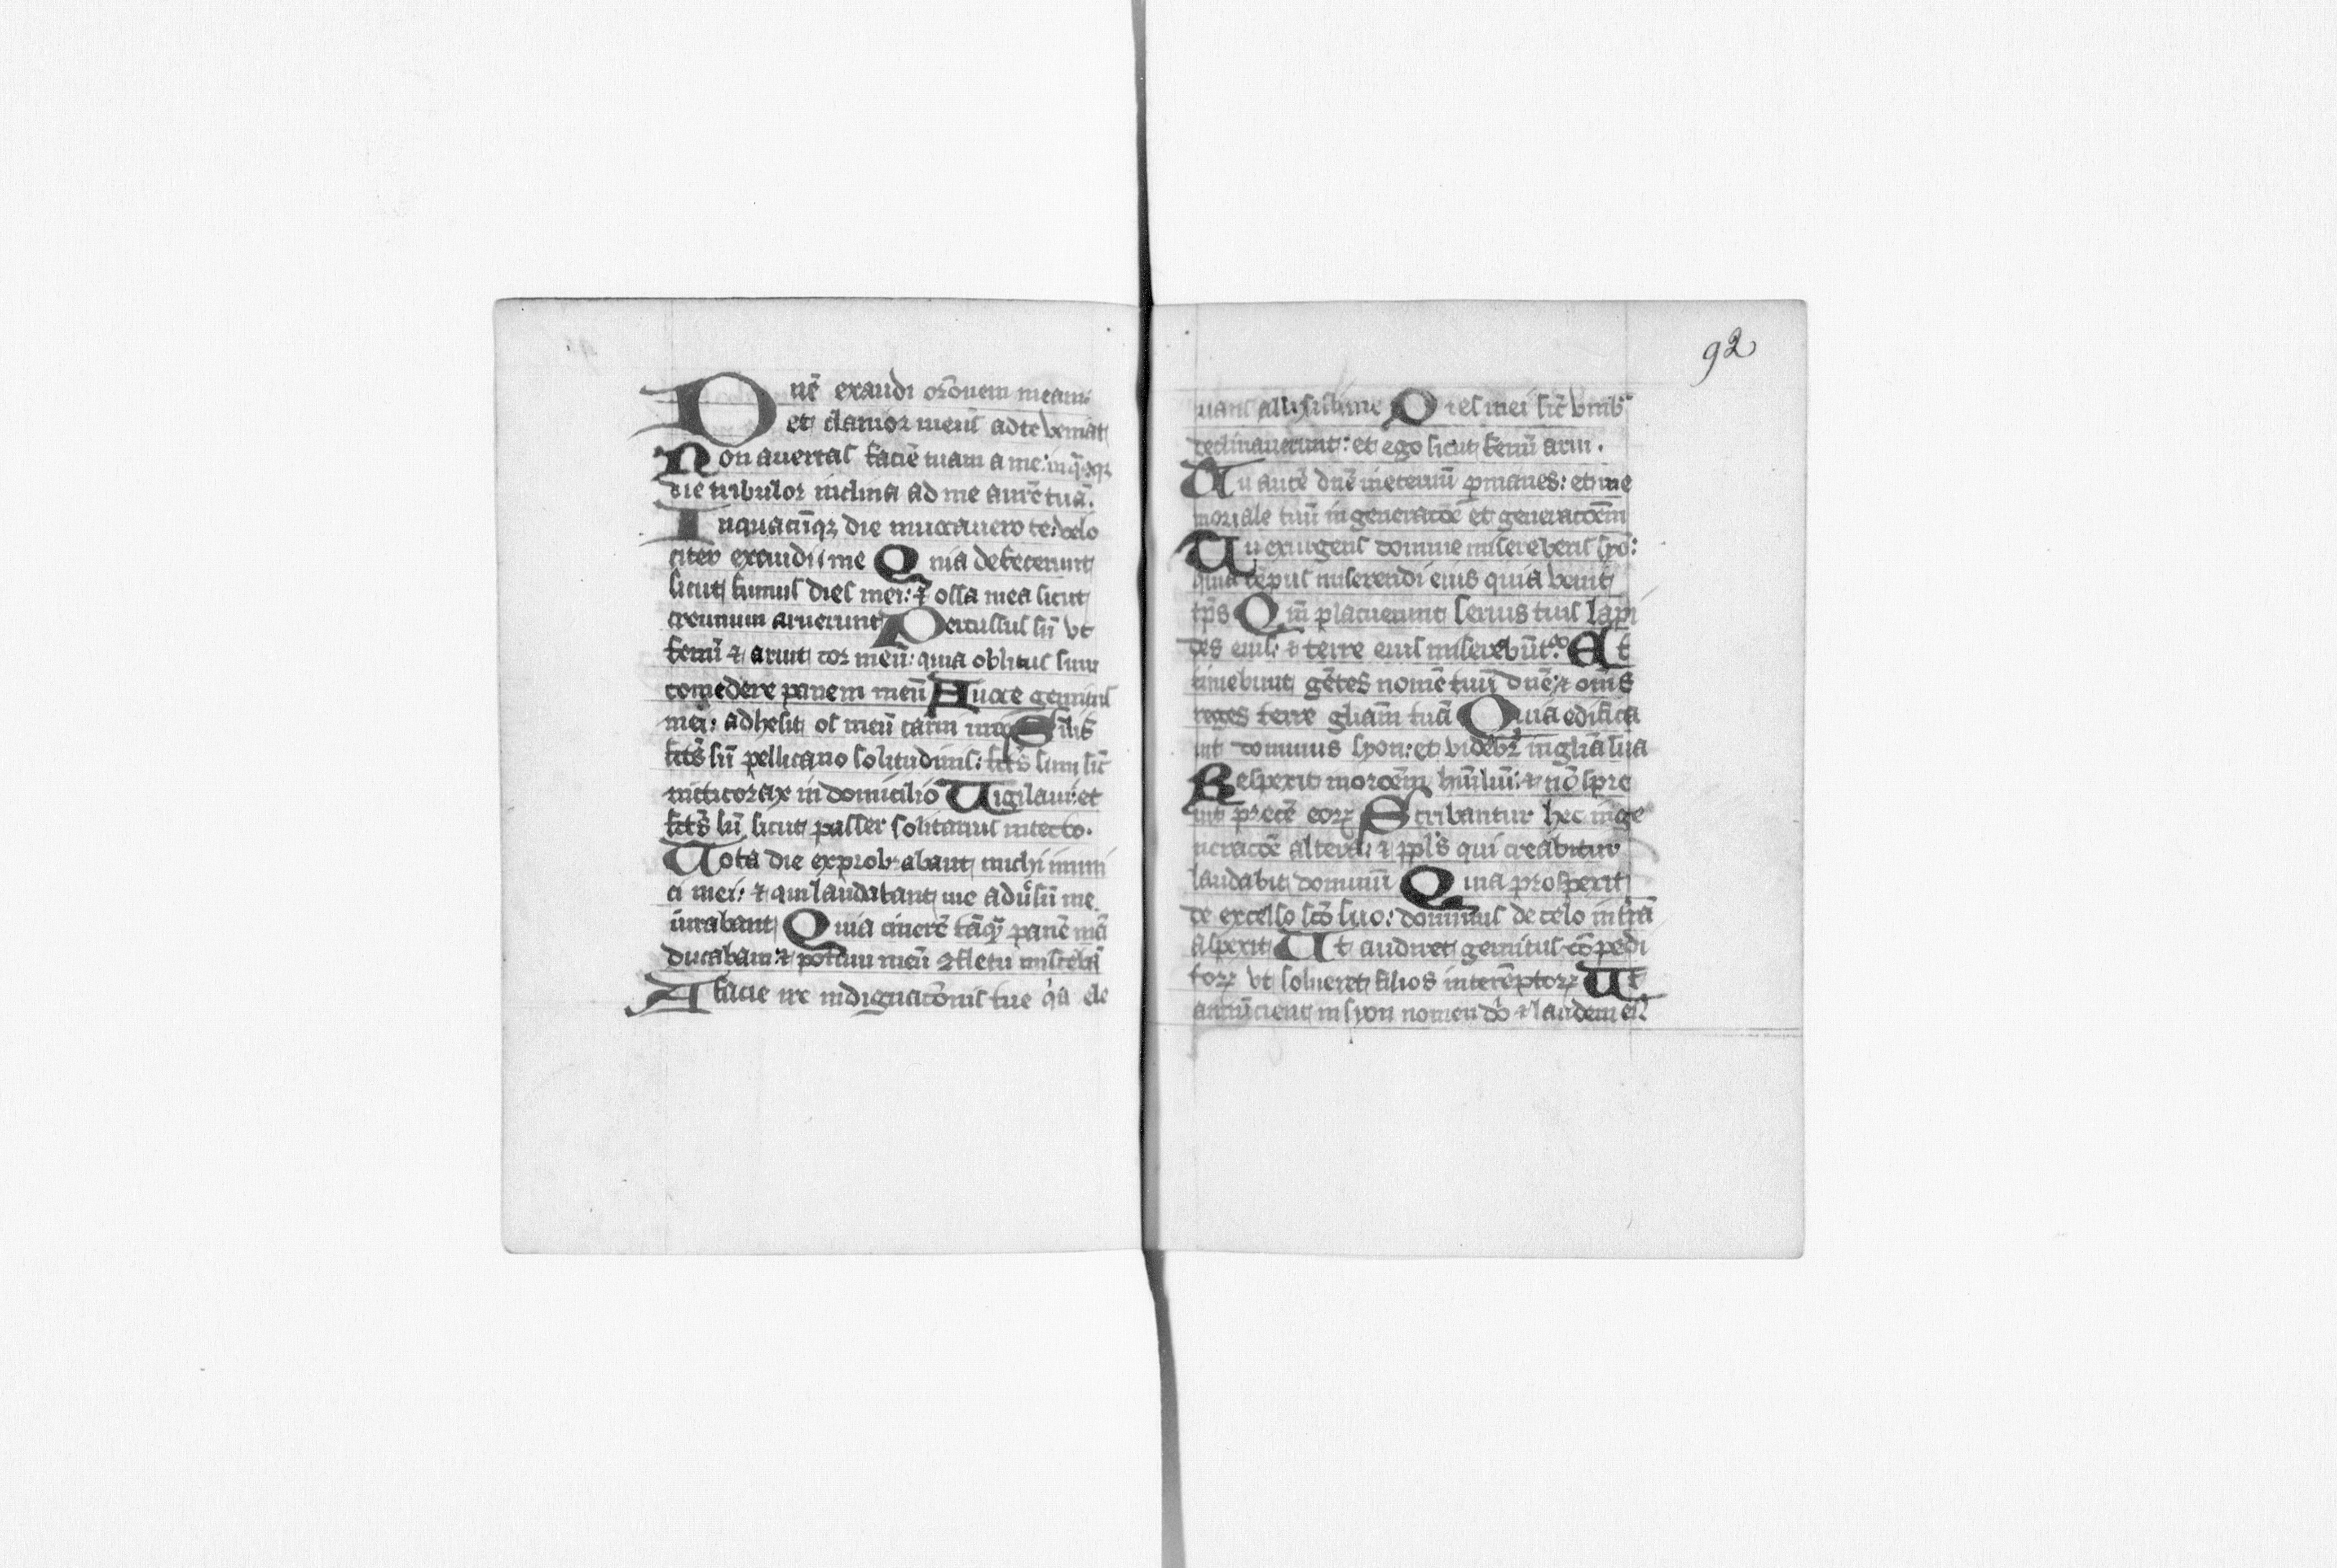 Dnē exaudi orōnem meam:
et clamor meus ad te veniat
Non auertas faciē tuam a me: in q̄cūqꝫ
die tribulor inclina ad me aurē tuā.
In quacūqꝫ die inuocauero te: velo
citer exaudi me Quia defecerunt
sicut fumus dies mei: ⁊ ossa mea sicut
cremium aruerunt Percussus sū vt
fenū ⁊ aruit cor meū: quia oblitus sum
comedere panem meū A uoce gemitus
mei: adhesit os meū carni mee Silis
fcūs sū pellicano solitudinis: fcūs sum sic̄
nicticorax in domicilio Uigilaui: et
fcūs sū sicut passer solitarius in tecto.
Tota die exprobrabant michi inimi
ci mei: ⁊ qui laudabant me adūsū me
iurabant Quia cinerē tāqꝫ panē mā
ducabam: ⁊ potum meū cū fletu miscebā
A facie ire indignacōnis tue q̇a ele
92
uans allisisti me Dies mei sic̄ vmb̄
declinauerunt: et ego sicut fenū arui.
Tu autē dnē in eternū ꝑmanes: et me
moriale tuū in generacōe et generacōem
Tu exurgens domine misereberis syō:
quia tēpus miserendi eius quia venit
tp̄s Qm̄ placuerunt seruis tuis lapi
des eius: ⁊ terre eius miserebūtᷣ Et
timebunt gētes nomē tuū dnē: ⁊ om̄s
reges terre gliam̄ tuā Quia edifica
uit dominus syon: et videbit̄ in glīa sua
Respexit in orōem humiliū: ⁊ nō spre
uit precē eoꝝ Scribantur hec in ge
neracōe altera: ⁊ ppl̄s qui creabitur
laudabit dominū Quia prospexit
de excelso scō suo: dominus de celo in terrā
aspexit Ut audiret gemitus cōpedi
toꝝ vt solueret filios interēptoꝝ Ut
annūcient in syon nomen dn̄i ⁊ laudem ei9